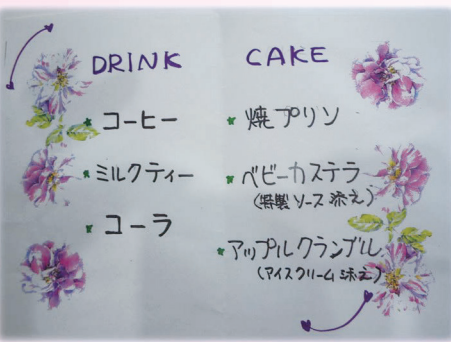 DRINK
コーヒー
ミルクティー
コーラ
CAKE
焼プリン
ベビーカステラ
(特製ソース添え)
アップルクランブル
(アイスクリーム添え)